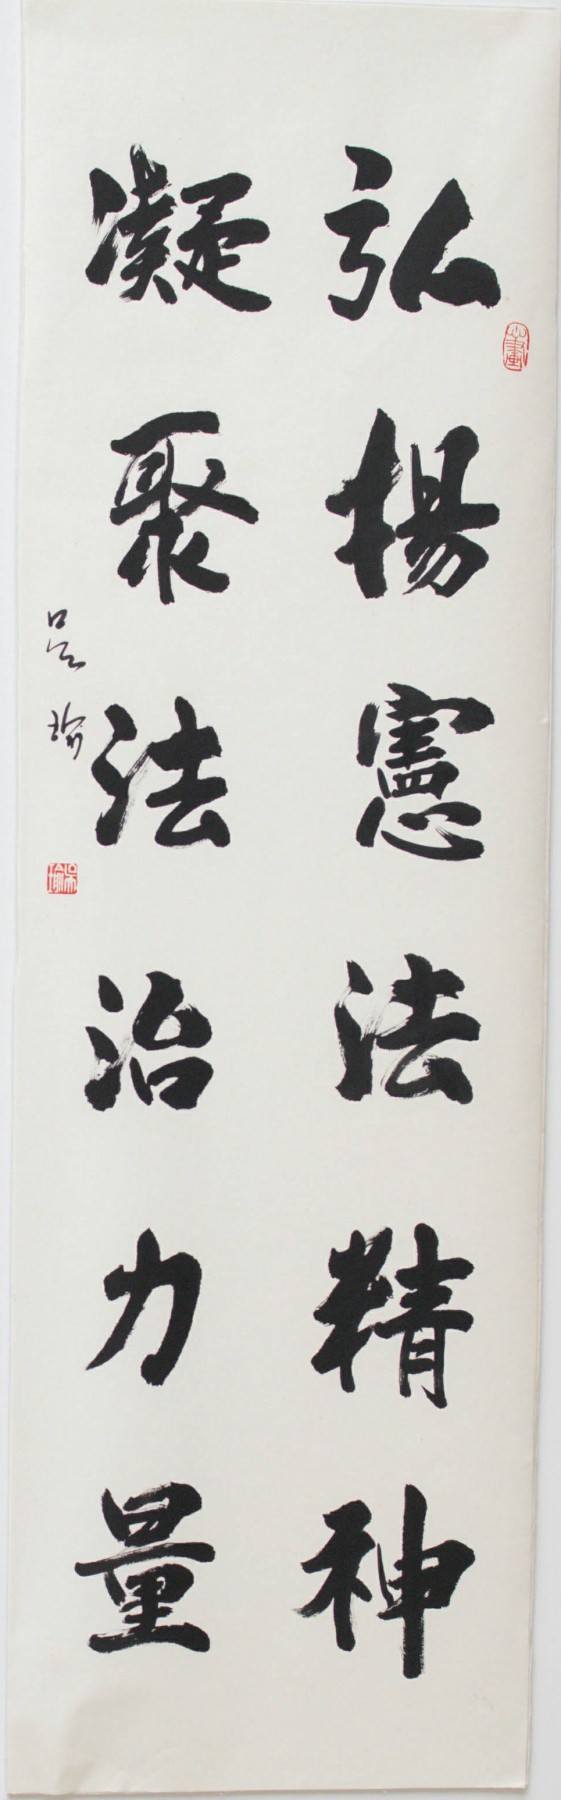 弘揚憲法精神
凝聚法治力量
吴瑜